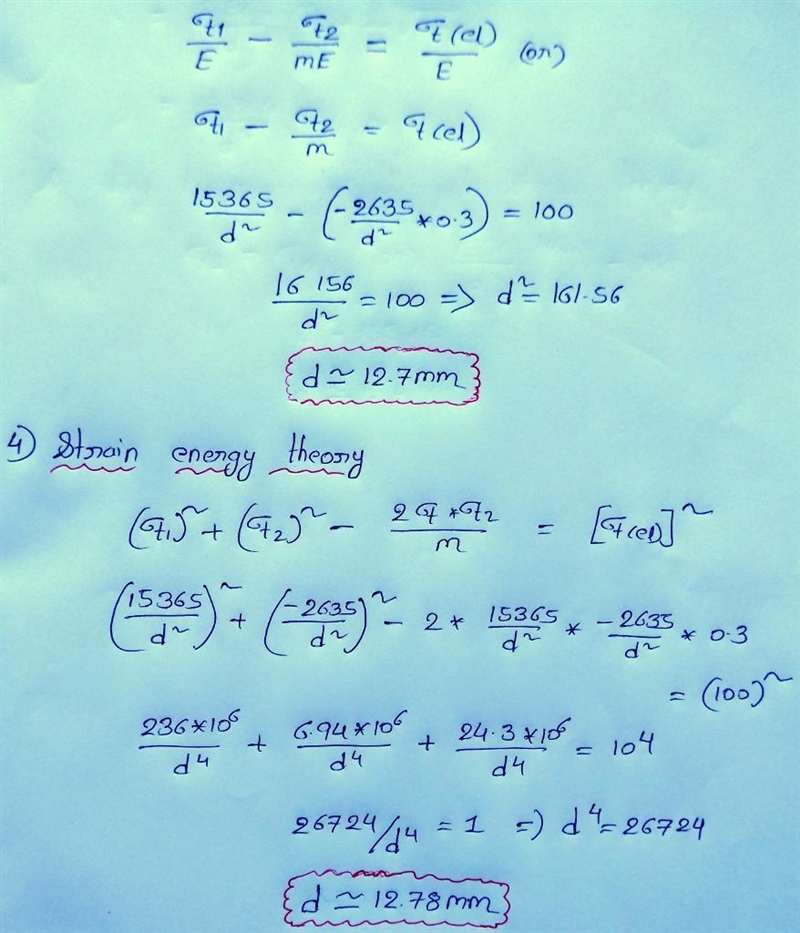 σt1/E − σt2/mE = σt(el)/E (or)
σt1 − σt2/m = σt(el)
15365/d² − (−2635/d² * 0.3) = 100
16156/d² = 100 => d² = 161.56
d ≃ 12.7mm
4) Strain energy theory
(σt1)² + (σt2)² − 2σt * σt2/m = [σt(el)]²
(15365/d²)² + (−2635/d²)² − 2 * 15365/d² * −2635/d² * 0.3
= (100)²
236*10⁶/d⁴ + 6.94*10⁶/d⁴ + 24.3*10⁶/d⁴ = 10⁴
26724/d⁴ = 1 => d⁴ = 26724
d ≃ 12.78mm